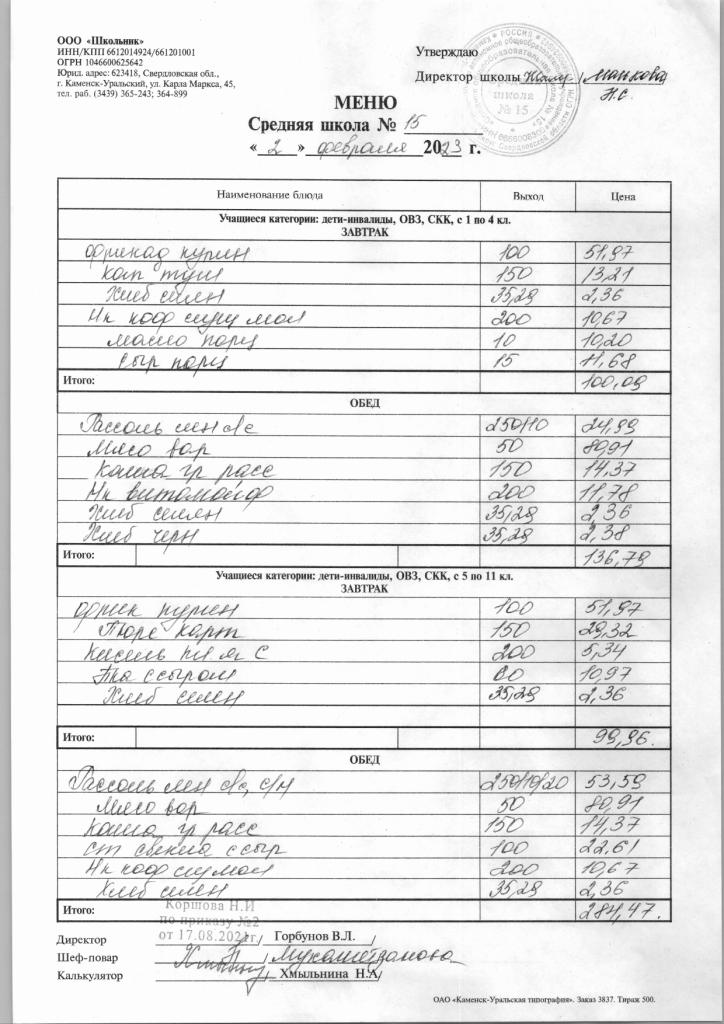 ООО «Школьник»
ИНН/КПП 6612014924/661201001
ОГРН 1046600625642
Юрид. адрес: 623418, Свердловская обл.,
г. Каменск-Уральский, ул. Карла Маркса, 45,
тел. раб. (3439) 365-243; 364-899
Утверждаю
Директор школы / Манькова
Н.С.
школа
№ 15
МЕНЮ
Средняя школа № 15
«2» февраля 2023 г.
Наименование блюда Выход Цена
Учащиеся категории: дети-инвалиды, ОВЗ, СКК, с 1 по 4 кл.
ЗАВТРАК
фрикад курин 100 51,97
кап туш 150 13,21
Хлеб селян 35,29 2,36
Нк коф сгущ мол 200 10,67
масло порц 10 10,20
сыр порц 15 11,68
Итого: 100,09
ОБЕД
Рассоль лен с/с 250/10 24,99
Мясо вар 50 80,91
Каша гр расс 150 14,37
Нк витомайф 200 11,78
Хлеб селян 35,29 2,36
Хлеб черн 35,29 2,38
Итого: 136,79
Учащиеся категории: дети-инвалиды, ОВЗ, СКК, с 5 по 11 кл.
ЗАВТРАК
фрик курин 100 51,97
Пюре карт 150 29,32
Кисель пл яг С 200 5,34
с сыром 10,97
Хлеб селян 35,29 2,36
Итого: 99,96.
ОБЕД
Рассоль лен с/с, с/м 250/10/20 53,59
Мясо вар 50 80,91
Каша гр расс 150 14,37
ст свекла с сыр 100 22,61
Нк коф сгу мол 200 10,67
Хлеб селян 35,29 2,36
Итого: 284,47.
Коршова Н.И
по приказу №2
от 17.08.2021г.
Директор / Горбунов В.Л. /
Шеф-повар / Мухаметзянова
Калькулятор / Хмыльнина Н.А/
ОАО «Каменск-Уральская типография». Заказ 3837. Тираж 500.